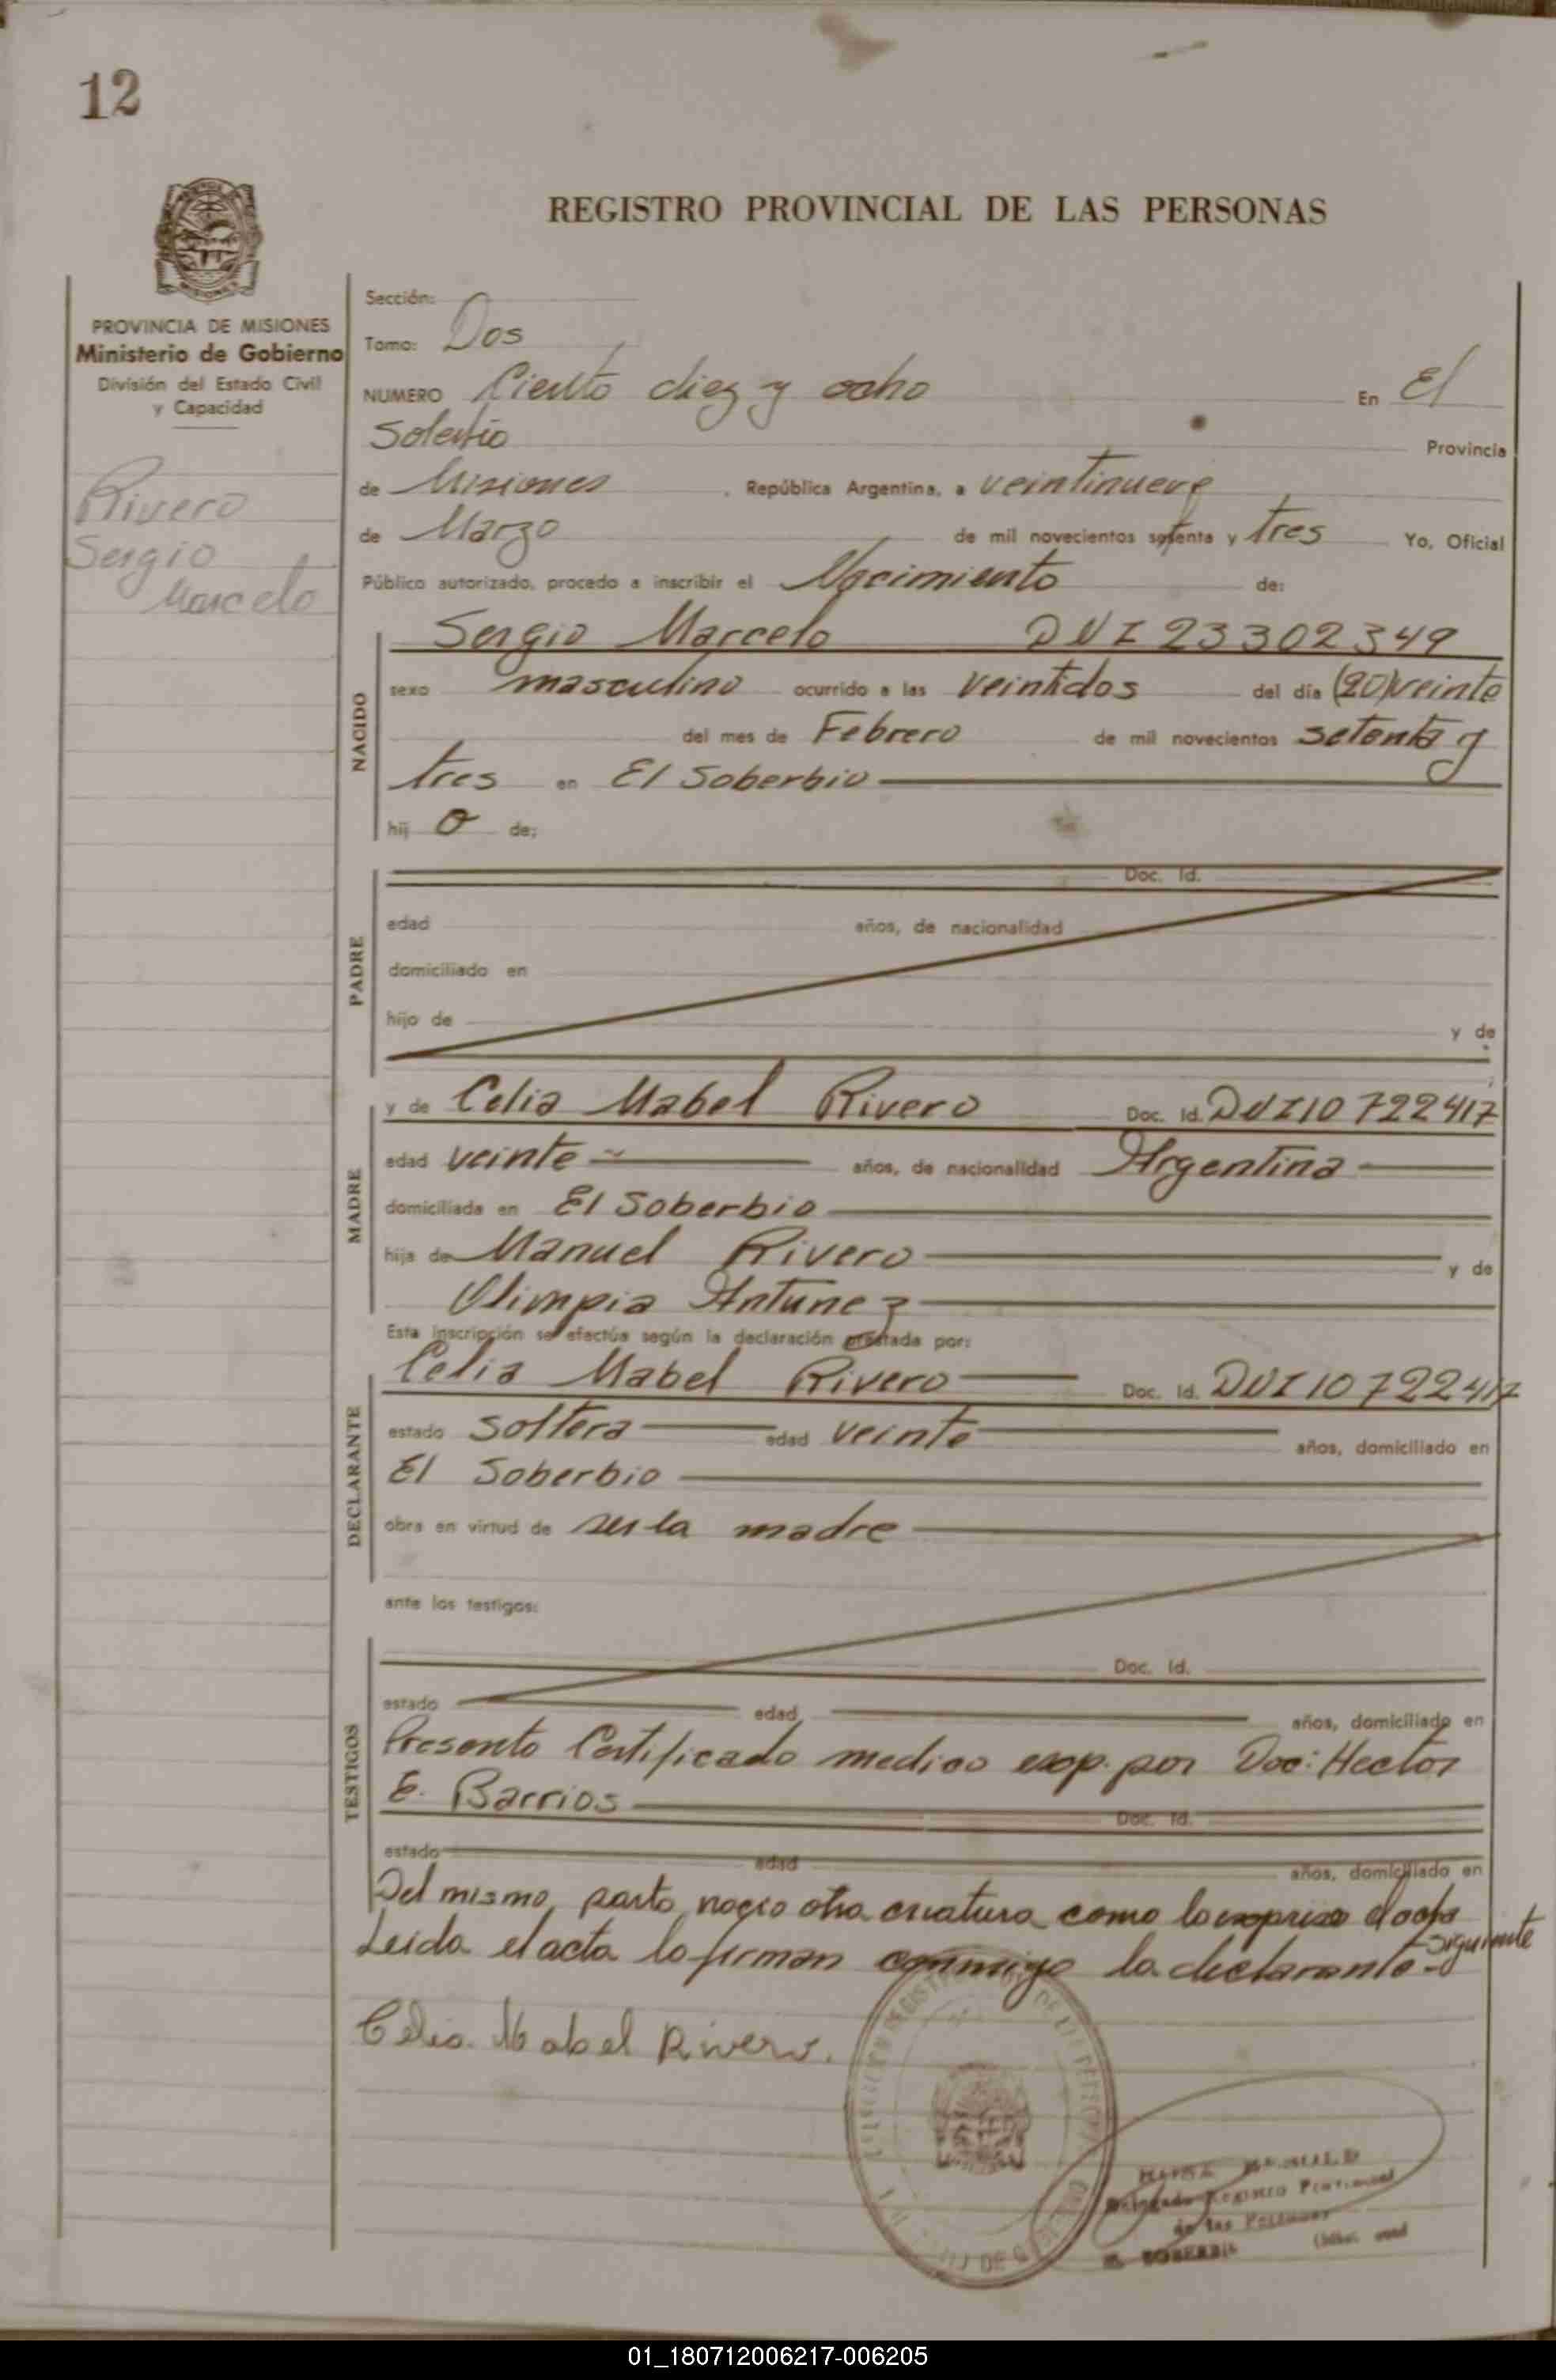 12
REGISTRO PROVINCIAL DE LAS PERSONAS
PROVINCIA DE MISIONES
Ministerio de Gobierno
División del Estado Civil
y Capacidad
Rivero
Sergio
Marcelo
Sección:
Tomo: Dos
NUMERO Ciento diez y ocho En El
Soberbio Provincia
de Misiones , República Argentina, a veintinueve
de Marzo de mil novecientos setenta y tres Yo, Oficial
Público autorizado, procedo a inscribir el Nacimiento de:
NACIDO
Sergio Marcelo DNI 23302349
sexo masculino ocurrido a las veintidos del día (20) veinte
del mes de Febrero de mil novecientos setenta y
tres en El Soberbio
hij o de:
PADRE
Doc. Id.
edad años, de nacionalidad
domiciliado en
hijo de y de
MADRE
y de Celia Mabel Rivero Doc. Id. DNI 10722417
edad veinte años, de nacionalidad Argentina
domiciliada en El Soberbio
hija de Manuel Rivero y de
Olimpia Antunez
Esta inscripción se efectúa según la declaración prestada por:
DECLARANTE
Celia Mabel Rivero Doc. Id. DNI 10722417
estado soltera edad veinte años, domiciliado en
El Soberbio
obra en virtud de ser la madre
ante los testigos:
TESTIGOS
Doc. Id.
estado edad años, domiciliado en
Presento Certificado medico exp. por Doc: Hector
E. Barrios Doc. Id.
estado edad años, domiciliado en
Del mismo parto nacio otra criatura como lo expresa el acta
siguiente
Leida el acta lo firman conmigo la declarante
Celia Mabel Rivero.
Delegado Registro Provincial
de las Personas
EL SOBERBIO
01_180712006217-006205